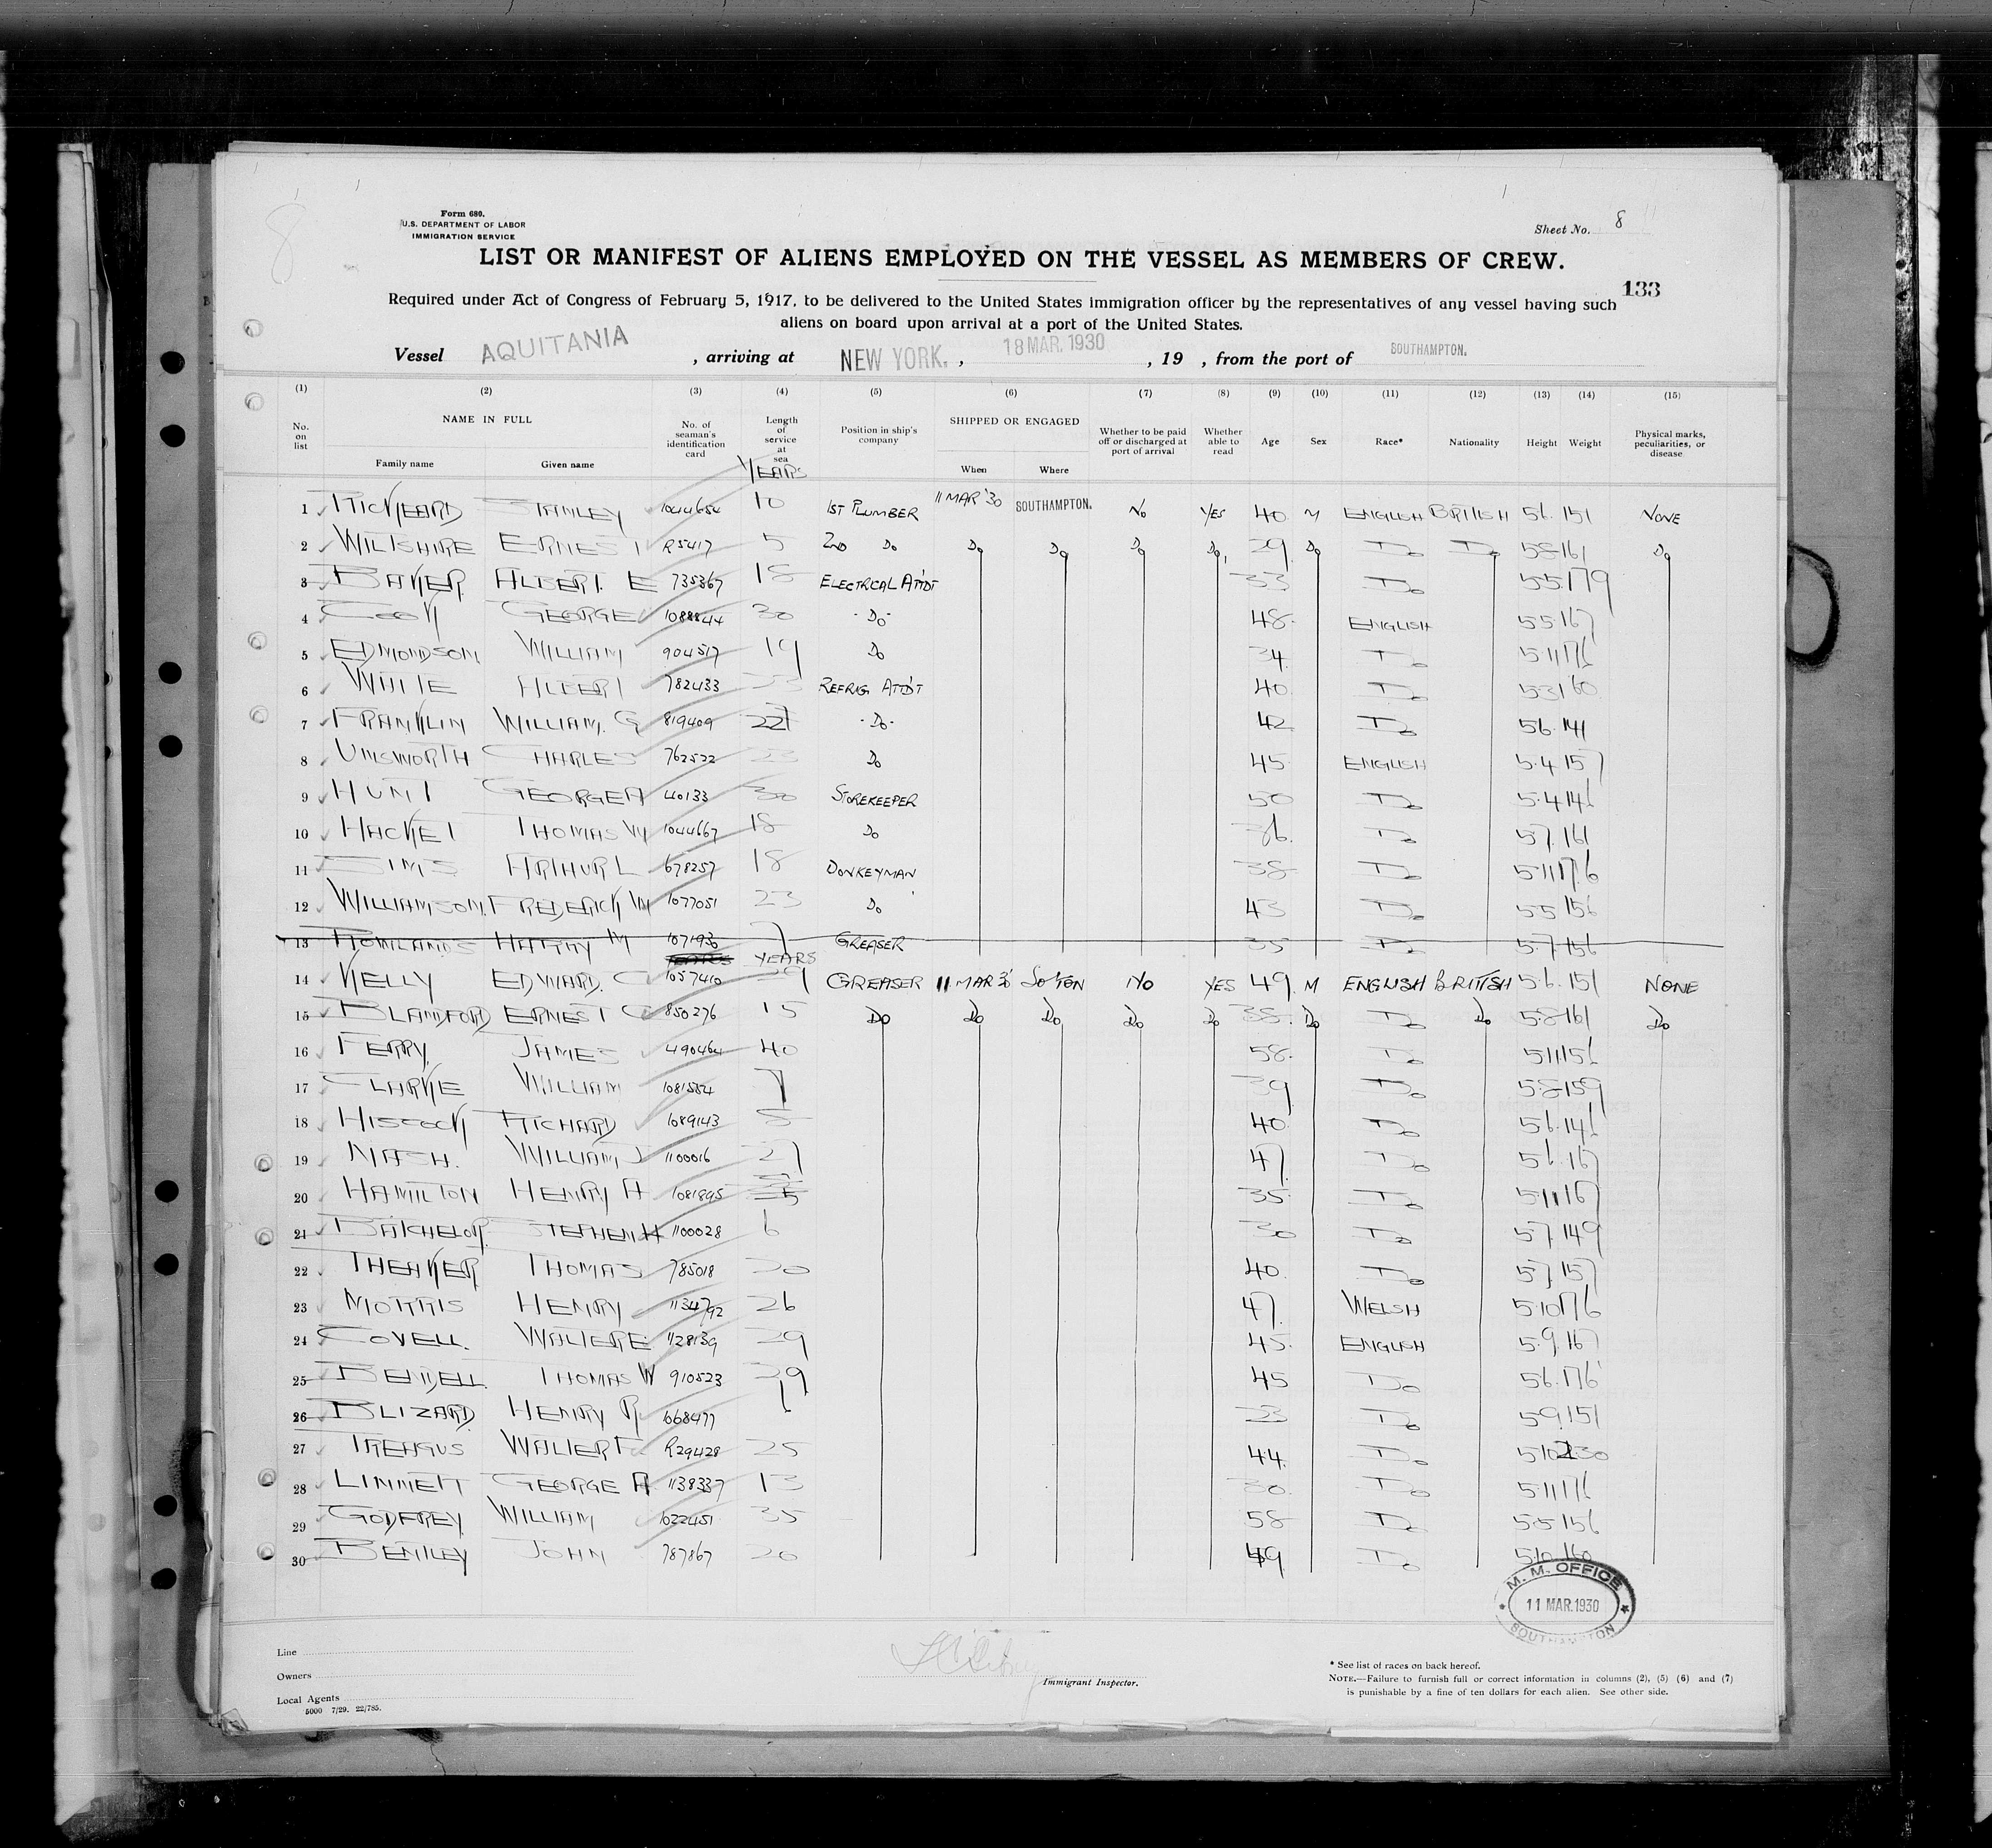 8
Form 680.
U.S. DEPARTMENT OF LABOR
IMMIGRATION SERVICE
Sheet No. 8
LIST OR MANIFEST OF ALIENS EMPLOYED ON THE VESSEL AS MEMBERS OF CREW.
133
Required under Act of Congress of February 5, 1917, to be delivered to the United States immigration officer by the representatives of any vessel having such
aliens on board upon arrival at a port of the United States.
Vessel AQUITANIA , arriving at NEW YORK. , 18 MAR. 1930 , 19 , from the port of SOUTHAMPTON.
(1) (2) (3) (4) (5) (6) (7) (8) (9) (10) (11) (12) (13) (14) (15)
No. on list NAME IN FULL Family name Given name No. of seaman's identification card Length of service at sea YEARS Position in ship's company SHIPPED OR ENGAGED When Where Whether to be paid off or discharged at port of arrival Whether able to read Age Sex Race* Nationality Height Weight Physical marks, peculiarities, or disease
1 STANLEY 1044654 10 1ST PLUMBER 11 MAR '30 SOUTHAMPTON. NO YES 40 M ENGLISH BRITISH 5.6. 151 NONE
2 WILTSHIRE ERNEST R5417 5 2ND DO DO DO DO DO 29 DO DO DO 5.8 161 DO
3 BAKER ALBERT. E 735367 18 ELECTRICAL ATTDT 33 DO 5.5. 179
4 COOK GEORGE 1088844 30 -DO- 48. ENGLISH 5.5 167
5 EDMONDSON WILLIAM 904517 19 DO 34 DO 5.11 176
6 ALBERT 782433 REFRIG ATTDT 40 DO 5.3 160
7 FRANKLIN WILLIAM. G 819409 22 -DO- 42 DO 5.6. 141
8 UNSWORTH CHARLES 762522 23 DO 45 ENGLISH 5.4 157
9 HUNT GEORGE A 40133 30 STOREKEEPER 50 DO 5.4 146
10 HACKET THOMAS W 1044667 18 DO 36 DO 5.7. 161
11 SIMS ARTHUR L 678257 18 DONKEYMAN 38 DO 5.11 176
12 WILLIAMSON. FREDERICK W 1077051 23 DO 43 DO 5.5 156
13 ROWLANDS HARRY W 107193 7 GREASER 35 DO 5.7 156
YEARS
14 KELLY EDWARD. C 1057410 29 GREASER 11 MAR 30 SO'TON NO YES 49 M ENGLISH BRITISH 5.6. 151 NONE
15 BLANDFORD ERNEST C 850276 15 DO DO DO DO DO 38. DO DO DO 5.8 161 DO
16 FERRY JAMES 490464 40 58. DO 5.11. 156
17 CLARKE WILLIAM 1081554 7 39 DO 5.8 159
18 HISCOCK RICHARD 1089143 40 DO 5.6. 146
19 NASH. WILLIAM J 1100016 27 47 DO 5.6. 167
20 HAMILTON HENRY A 1081895 35 DO 5.11 167
21 BATCHELOR STEPHEN H 1100028 6 30 DO 5.7 149
22 THEAKER THOMAS 785018 20 40 DO 5.7 157
23 MORRIS HENRY 1134792 26 47 WELSH 5.10 176
24 COVELL. WALTER E 1128139 29 45 ENGLISH 5.9 167
25 BENDELL THOMAS W 910523 29 45 DO 5.6. 176
26 BLIZARD HENRY R 668477 33 DO 5.9. 151
27 TREAGUS WALTER F R29428 25 44 DO 5.10 230
28 LINNETT GEORGE A 1138337 13 30 DO 5.11 176
29 GODFREY WILLIAM 1022451 35 58 DO 5.5 156
30 BENTLEY JOHN 787867 20 49 DO 5.10 160
M. M. OFFICE
11 MAR. 1930
SOUTHAMPTON
Line
Owners
Local Agents
5000 7/29. 22/785.
Immigrant Inspector.
* See list of races on back hereof.
NOTE.—Failure to furnish full or correct information in columns (2), (5) (6) and (7)
is punishable by a fine of ten dollars for each alien. See other side.